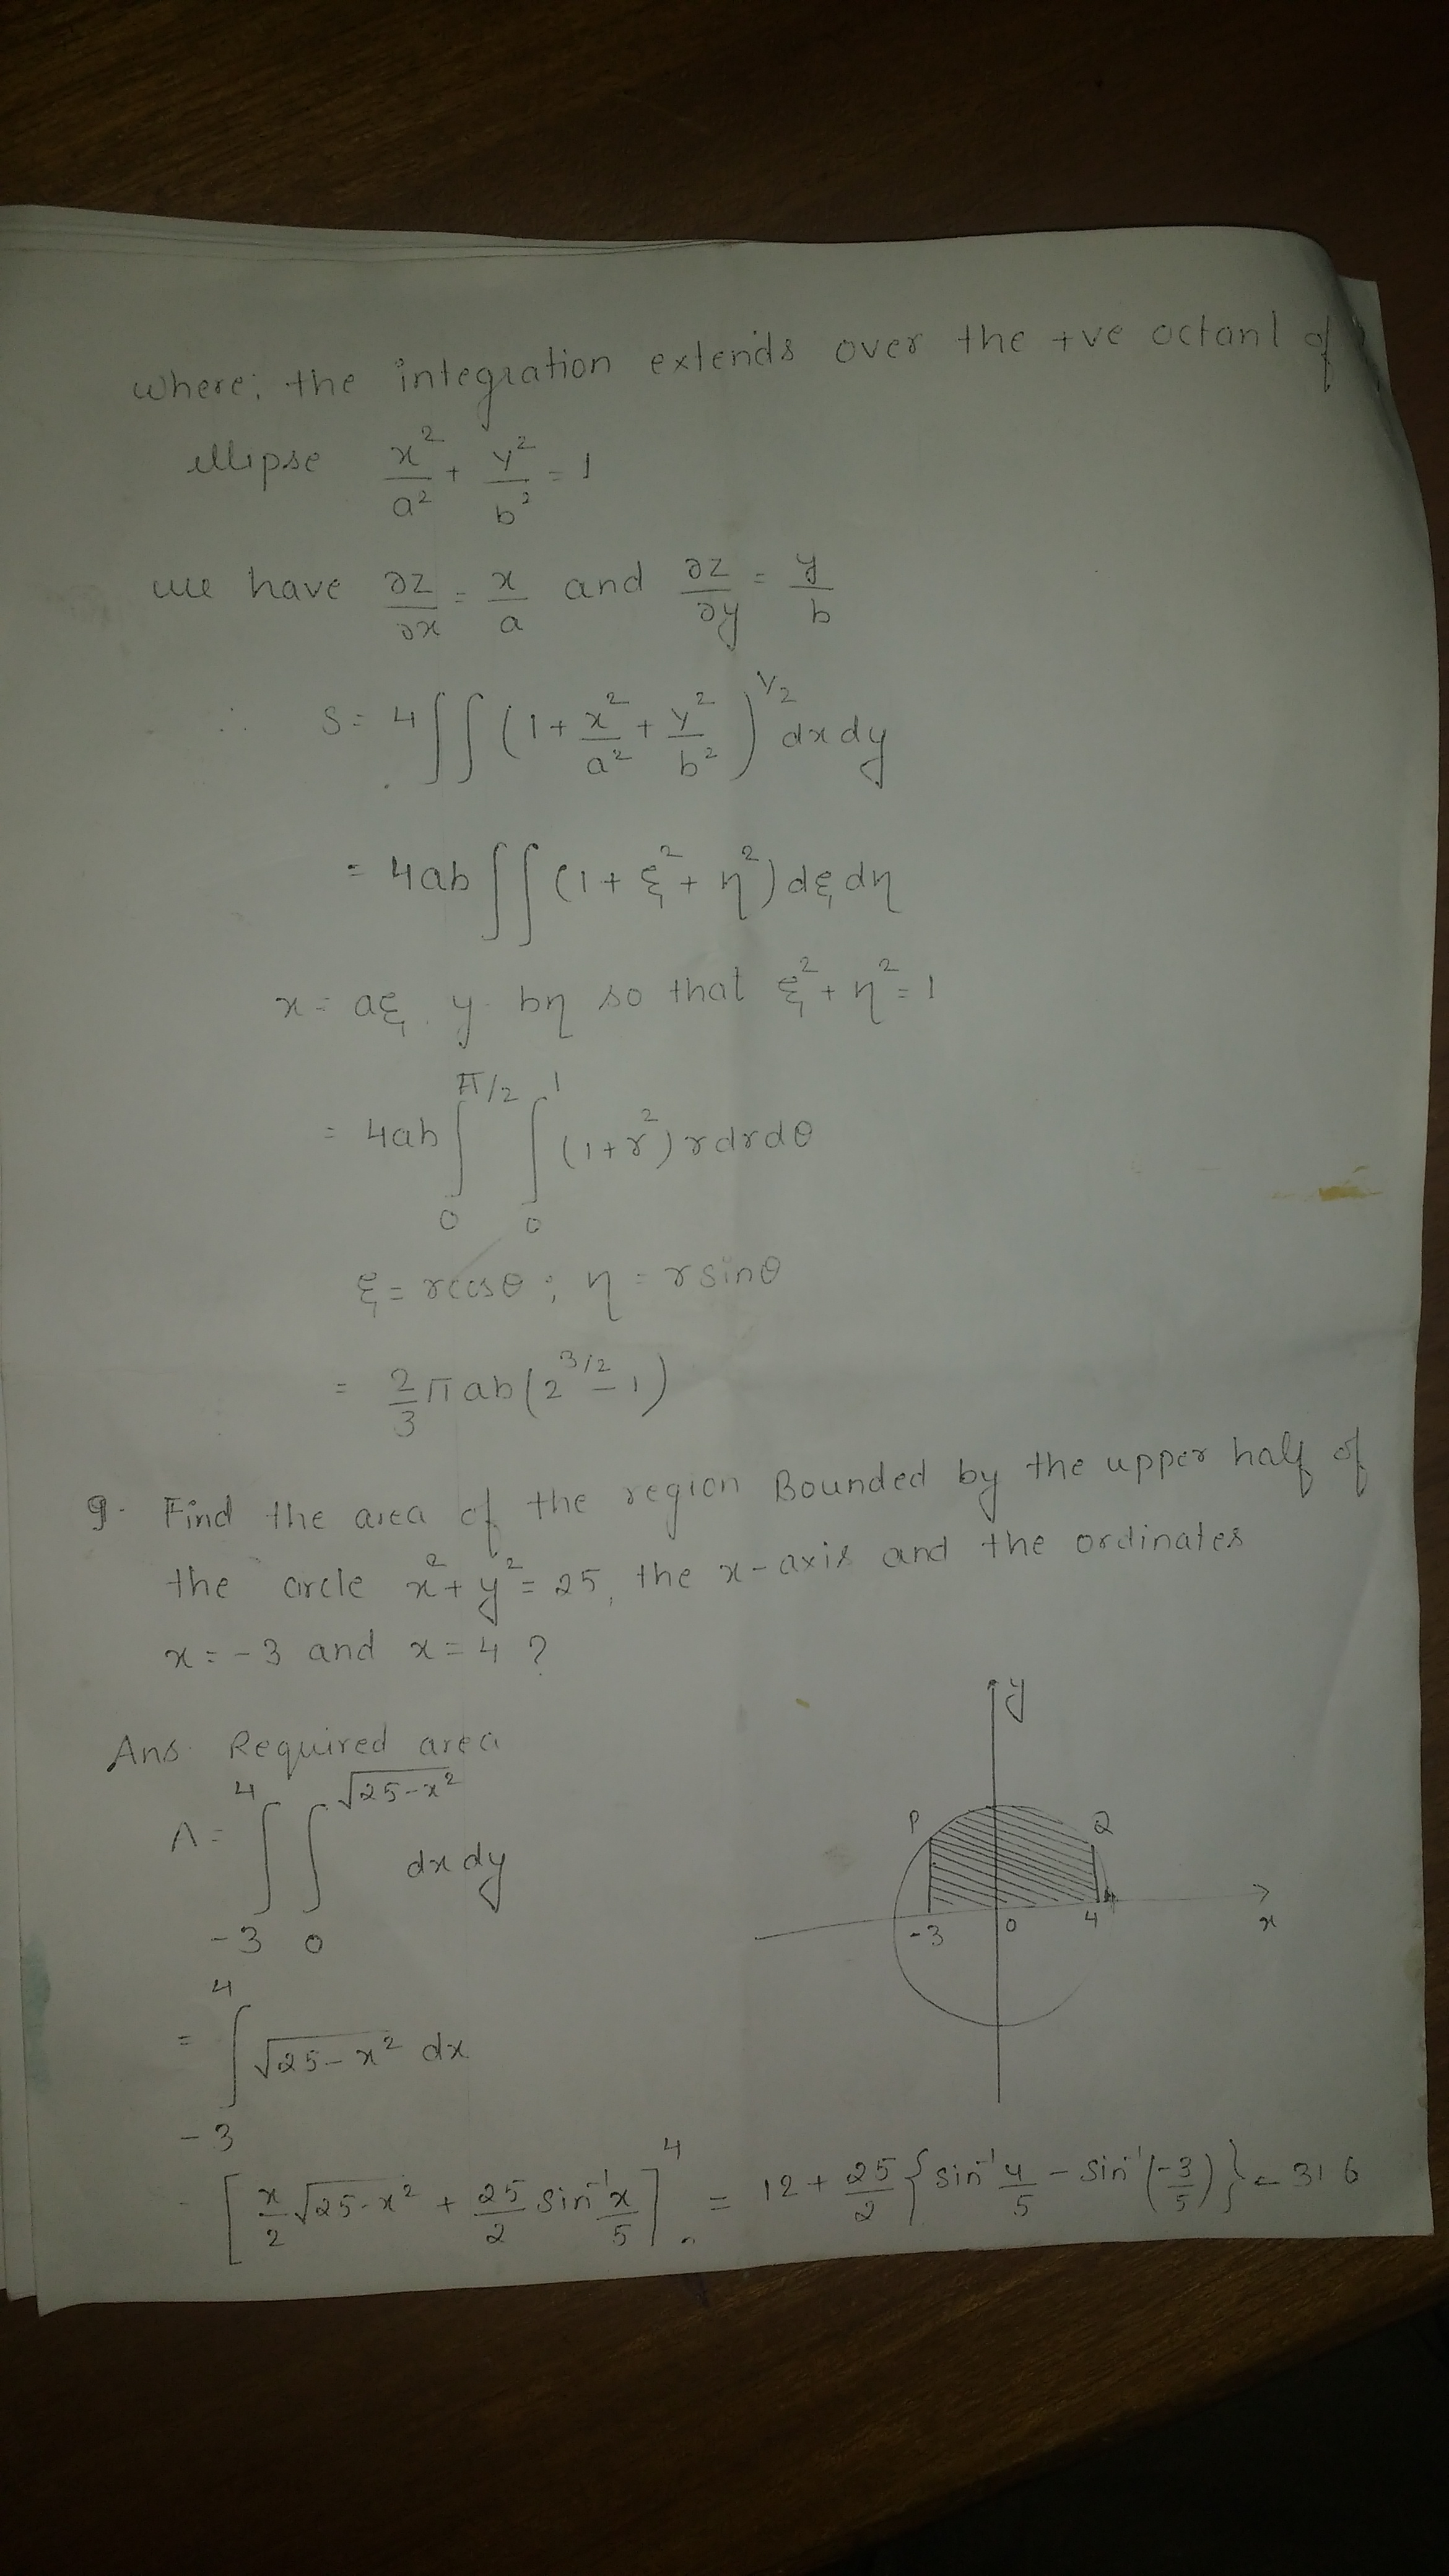 where; the integration extends over the +ve octant of
ellipse x²/a² + y²/b² = 1
we have ∂z/∂x = x/a and ∂z/∂y = y/b
∴ S = 4∫∫(1 + x²/a² + y²/b²)^1/2 dxdy
= 4ab∫∫(1 + ξ² + η²)dξdη
x = aξ, y = bη so that ξ² + η² = 1
= 4ab ∫₀^π/2 ∫₀^1 (1+r²)rdrdθ
ξ = rcosθ ; η = rsinθ
= 2/3 πab(2^3/2 − 1)
9. Find the area of the region Bounded by the upper half of
the circle x² + y² = 25, the x-axis and the ordinates
x = -3 and x = 4 ?
Ans Required area
A = ∫₋₃^4 ∫₀^√(25-x²) dxdy
= ∫₋₃^4 √(25-x²) dx
[x/2 √(25-x²) + 25/2 sin⁻¹ x/5]^4 = 12 + 25/2 {sin⁻¹ 4/5 − sin⁻¹(-3/5)} = 31.6
y
P
Q
-3
0
4
x